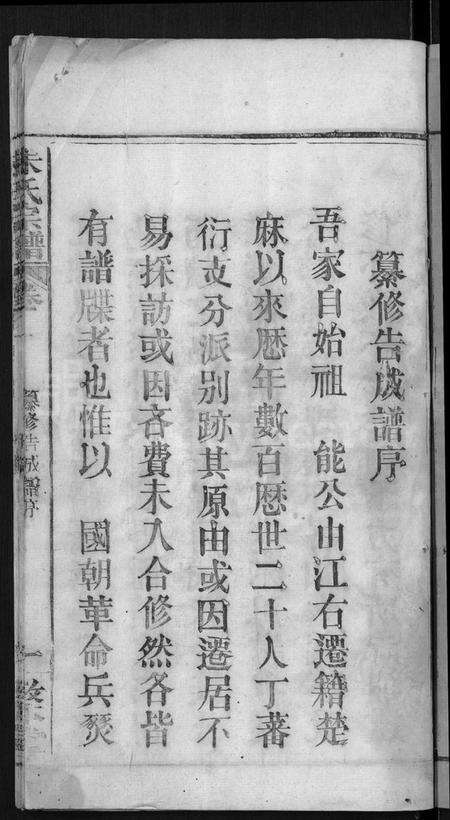 纂修告成譜序
吾家自始祖　能公由江右遷籍楚
麻以來歷年數百歷世二十人丁蕃
衍支分派别跡其原由或因遷居不
易採訪或因吝費未入合修然各皆
有譜牒者也惟以　國朝革命兵燹
朱氏宗譜　卷一
纂修告成譜序
一